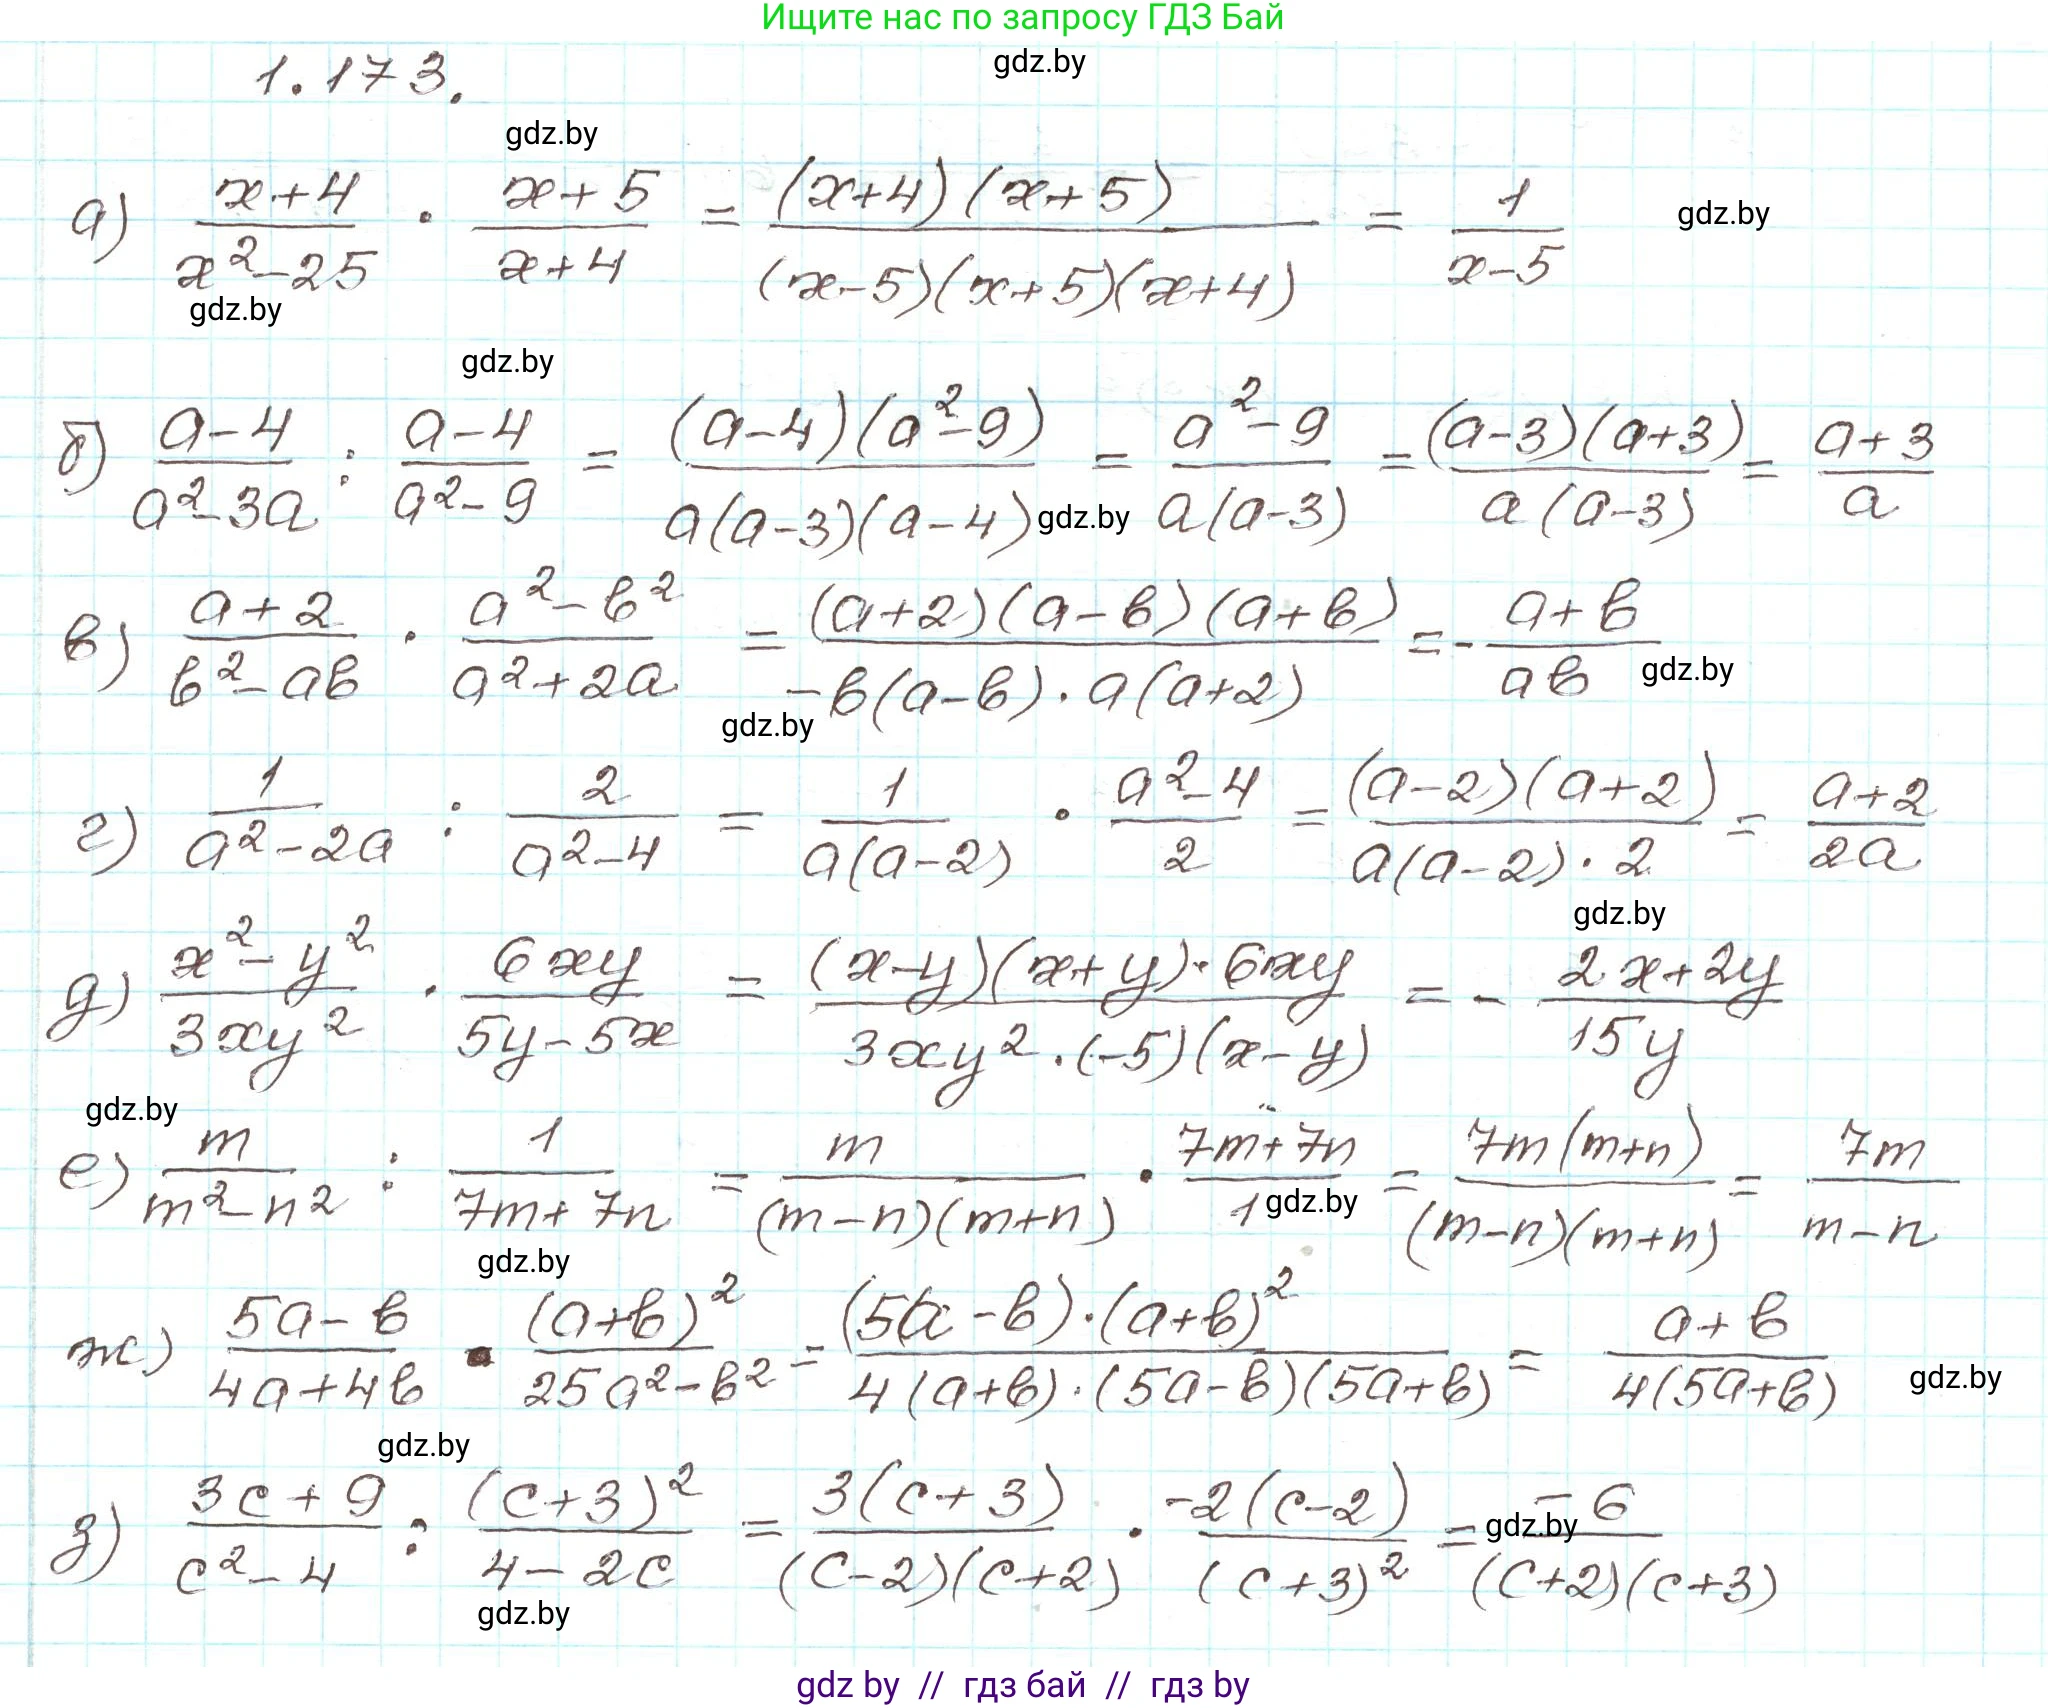 Ищите нас по запросу ГДЗ Бай
1.173.
gdz.by
gdz.by
а) (x+4)/(x²-25) · (x+5)/(x+4) = ((x+4)(x+5))/((x-5)(x+5)(x+4)) = 1/(x-5)
gdz.by
gdz.by
gdz.by
б) (a-4)/(a²-3a) : (a-4)/(a²-9) = ((a-4)(a²-9))/(a(a-3)(a-4)) = (a²-9)/(a(a-3)) = ((a-3)(a+3))/(a(a-3)) = (a+3)/a
gdz.by
в) (a+2)/(b²-ab) · (a²-b²)/(a²+2a) = ((a+2)(a-b)(a+b))/(-b(a-b)·a(a+2)) = - (a+b)/(ab)
gdz.by
gdz.by
г) 1/(a²-2a) : 2/(a²-4) = 1/(a(a-2)) · (a²-4)/2 = ((a-2)(a+2))/(a(a-2)·2) = (a+2)/(2a)
gdz.by
д) (x²-y²)/(3xy²) · (6xy)/(5y-5x) = ((x-y)(x+y)·6xy)/(3xy²·(-5)(x-y)) = - (2x+2y)/(15y)
gdz.by
е) m/(m²-n²) : 1/(7m+7n) = m/((m-n)(m+n)) · (7m+7n)/1 = (7m(m+n))/((m-n)(m+n)) = 7m/(m-n)
gdz.by
gdz.by
ж) (5a-b)/(4a+4b) · (a+b)²/(25a²-b²) = ((5a-b)·(a+b)²)/(4(a+b)·(5a-b)(5a+b)) = (a+b)/(4(5a+b))
gdz.by
gdz.by
з) (3c+9)/(c²-4) : (c+3)²/(4-2c) = (3(c+3))/((c-2)(c+2)) · (-2(c-2))/((c+3)²) = -6/((c+2)(c+3))
gdz.by
gdz.by
gdz by // гдз бай // гдз by